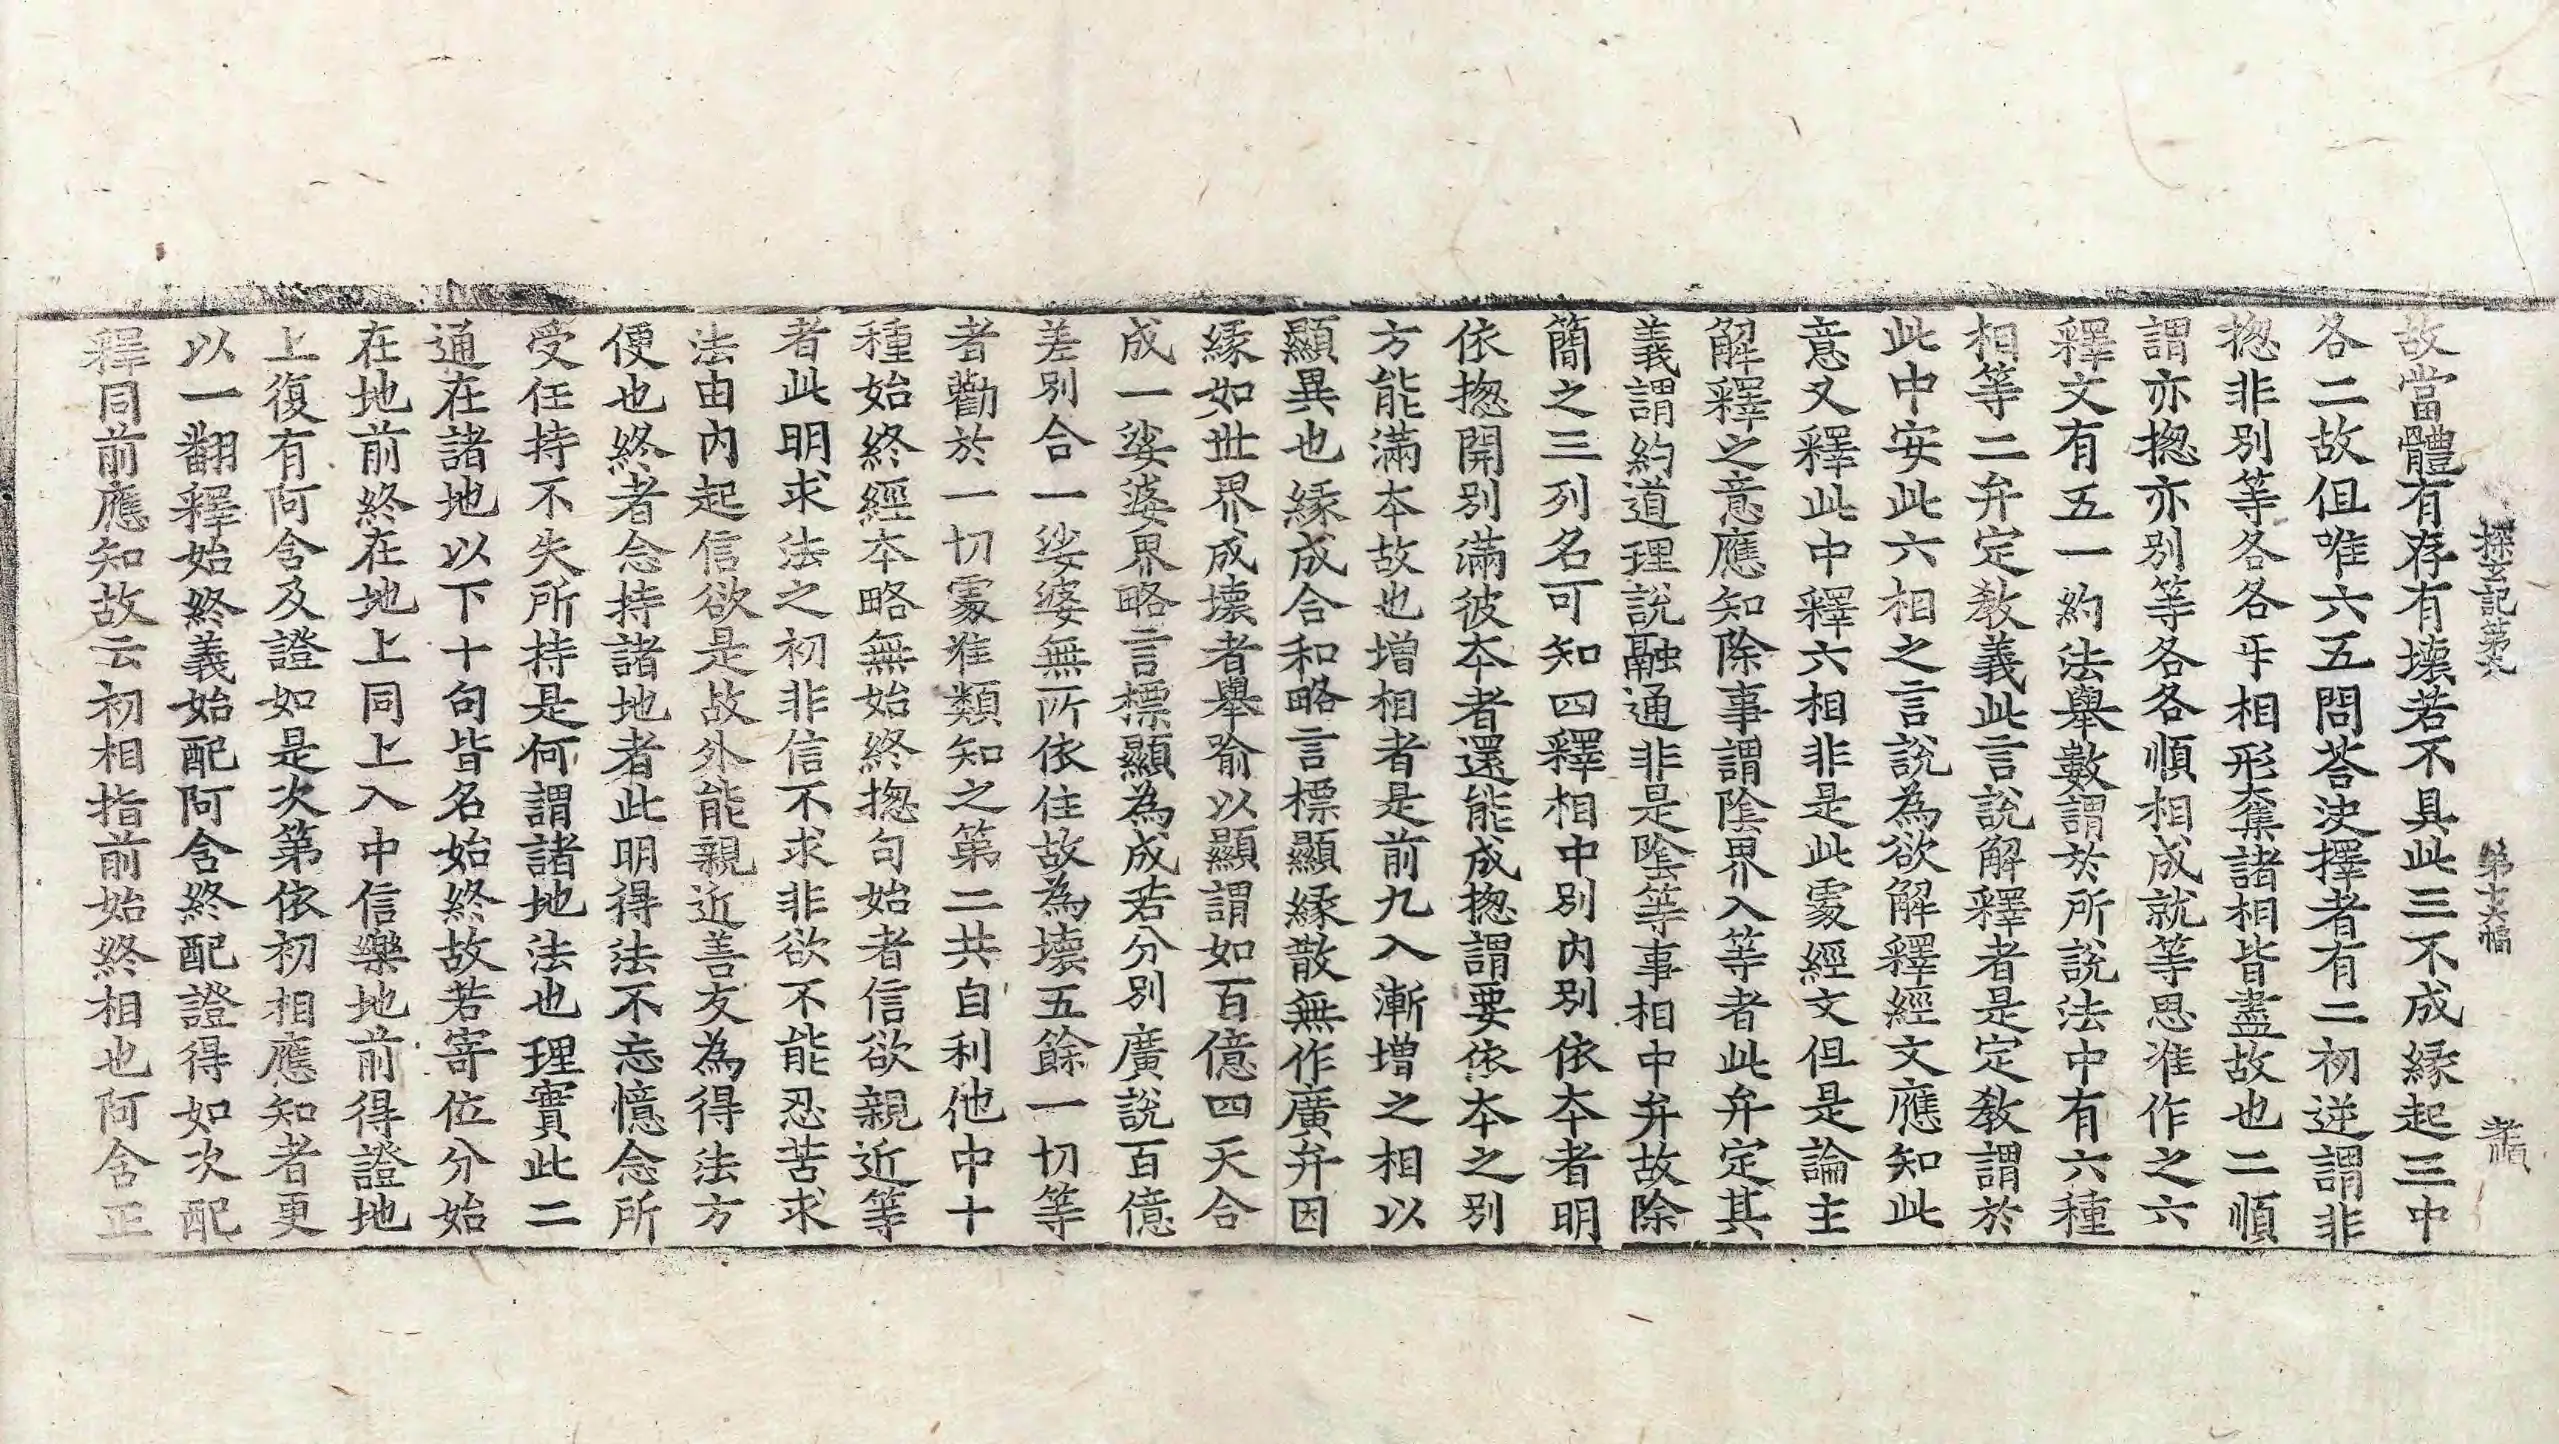 探玄記第九 第十六幅 孝楨
故當體有存有壞若不具此三不成緣起三中
各二故但唯六五問荅決擇者有二初逆謂非
揔非別等各各㸦相形奪諸相皆盡故也二順
謂亦揔亦別等各各順相成就等思准作之六
釋文有五一約法舉數謂於所說法中有六種
相等二弁定教義此言說解釋者是定教謂於
此中安此六相之言說為欲解釋經文應知此
意又釋此中釋六相非是此䖏經文但是論主
解釋之意應知除事謂陰界入等者此弁定其
義謂約道理說融通非是陰等事相中弁故除
簡之三列名可知四釋相中別内別依夲者明
依揔開別滿彼夲者還能成揔謂要依夲之別
方能滿夲故也增相者是前九入漸增之相以
顯異也緣成合和略言標顯緣散無作廣弁因
緣如世界成壞者舉喻以顯謂如百億四天合
成一娑婆界略言標顯為成若分別廣說百億
差別合一娑婆無所依住故為壞五餘一切等
者勸於一切䖏准類知之第二共自利他中十
種始終經夲略無始終揔句始者信欲親近等
者此明求法之初非信不求非欲不能忍苦求
法由内起信欲是故外能親近善友為得法方
便也終者念持諸地者此明得法不忘憶念所
受任持不失所持是何謂諸地法也理實此二
通在諸地以下十句皆名始終故若寄位分始
在地前終在地上同上入中信樂地前得證地
上復有阿含及證如是次第依初相應知者更
以一翻釋始終義始配阿含終配證得如次配
釋同前應知故云初相指前始終相也阿含正